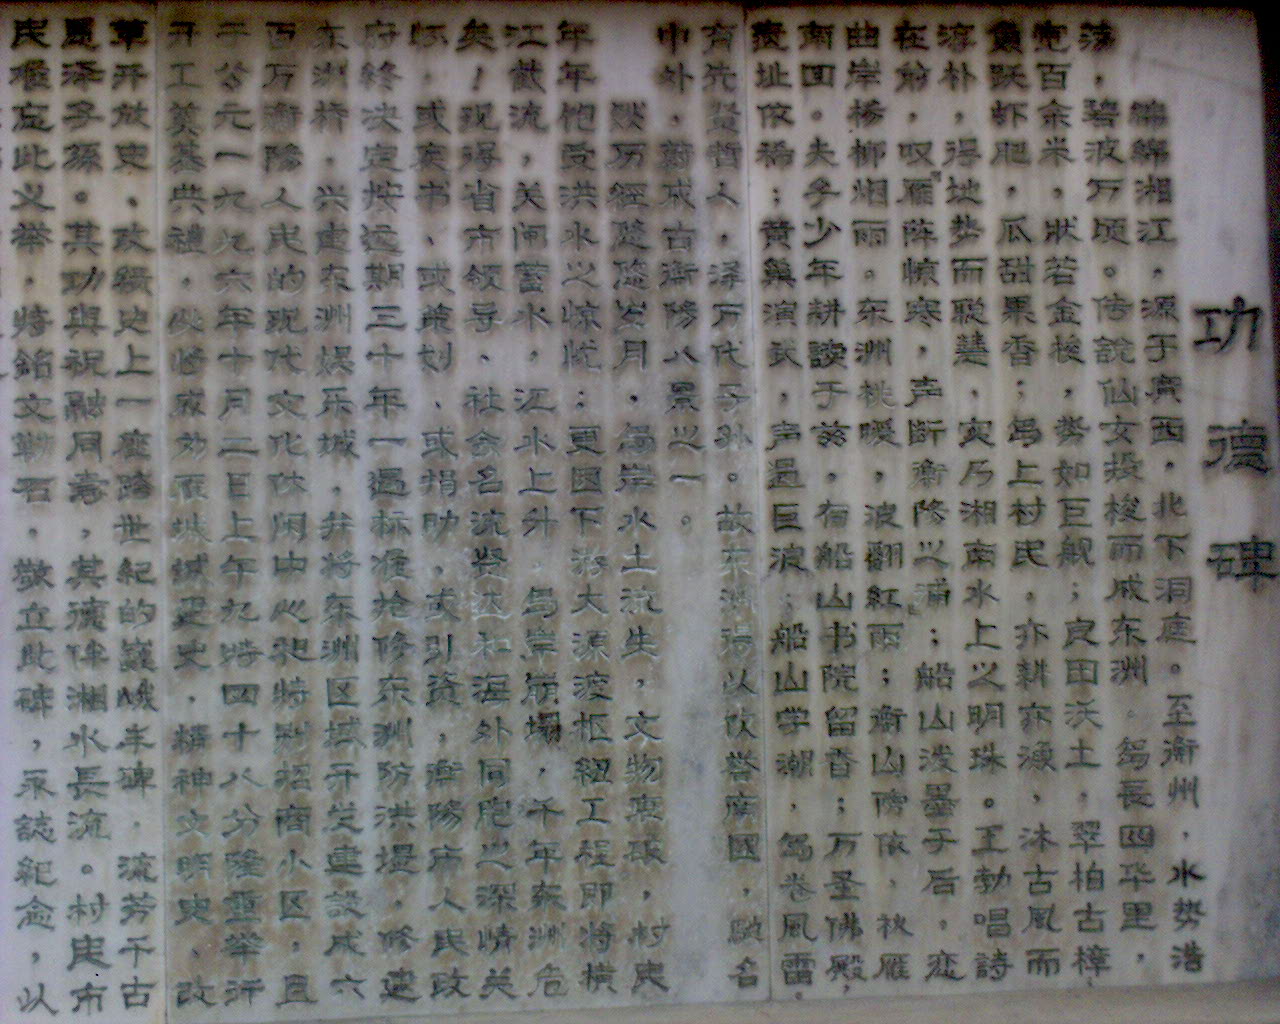 功德碑
綿綿湘江，源于宾西，北下洞庭。至衡州，水势浩
荡，碧波万顷。传說仙女投梭而成东洲。岛長四华里，
宽百余米，狀若金梭，势如巨舰；良田沃土，翠柏古樟，
鱼跃虾肥，瓜甜果香；岛上村民，亦耕亦漁，沐古風而
淳朴，得地势而聪慧，实乃湘南水上之明珠。王勃唱詩
在前，叹“雁阵惊寒，声断衡陽之浦”；船山泼墨于后，恋
曲岸楊柳烟雨。东洲桃暖，波翻紅雨；衡山傍依，秋雁
南回。夫子少年耕讀于兹，有船山书院留香；万圣佛殿，
遗址依稀；黄巢演武，声遏巨浪；船山学潮，岛卷風雷。
有先賢哲人，澤万代子孙。故东洲得以饮誉南國，馳名
中外，蔚成古衡陽八景之一。
談历經悠悠岁月，岛岸水土流失，文物衰殒，村民
年年饱受洪水之惊忧；更因下游大源渡枢紐工程即将横
江截流，关闸蓄水，江水上升，岛岸崩塌，千年东洲危
矣！现得省市领导、社会名流賢达和海外同胞之深情关
怀，或疾书、或策划、或捐助、或引資，衡陽市人民政
府终决定按远期三十年一遇标准抢修东洲防洪堤，修建
东洲桥，兴建东洲娱乐城，并将东洲区域开发建設成六
百万衡陽人民的现代文化休闲中心和特别招商小区，且
于公元一九九六年十月二日上午九時四十八分隆重举行
开工奠基典禮，必将成为雁城城建史、精神文明史、改
革开放史、政績史上一座跨世紀的巍峨丰碑，流芳千古，
惠泽子孫。其功與祝融同壽，其德伴湘水長流。村民市
民难忘此义举，特銘文勒石，敬立此碑，永誌紀念，以